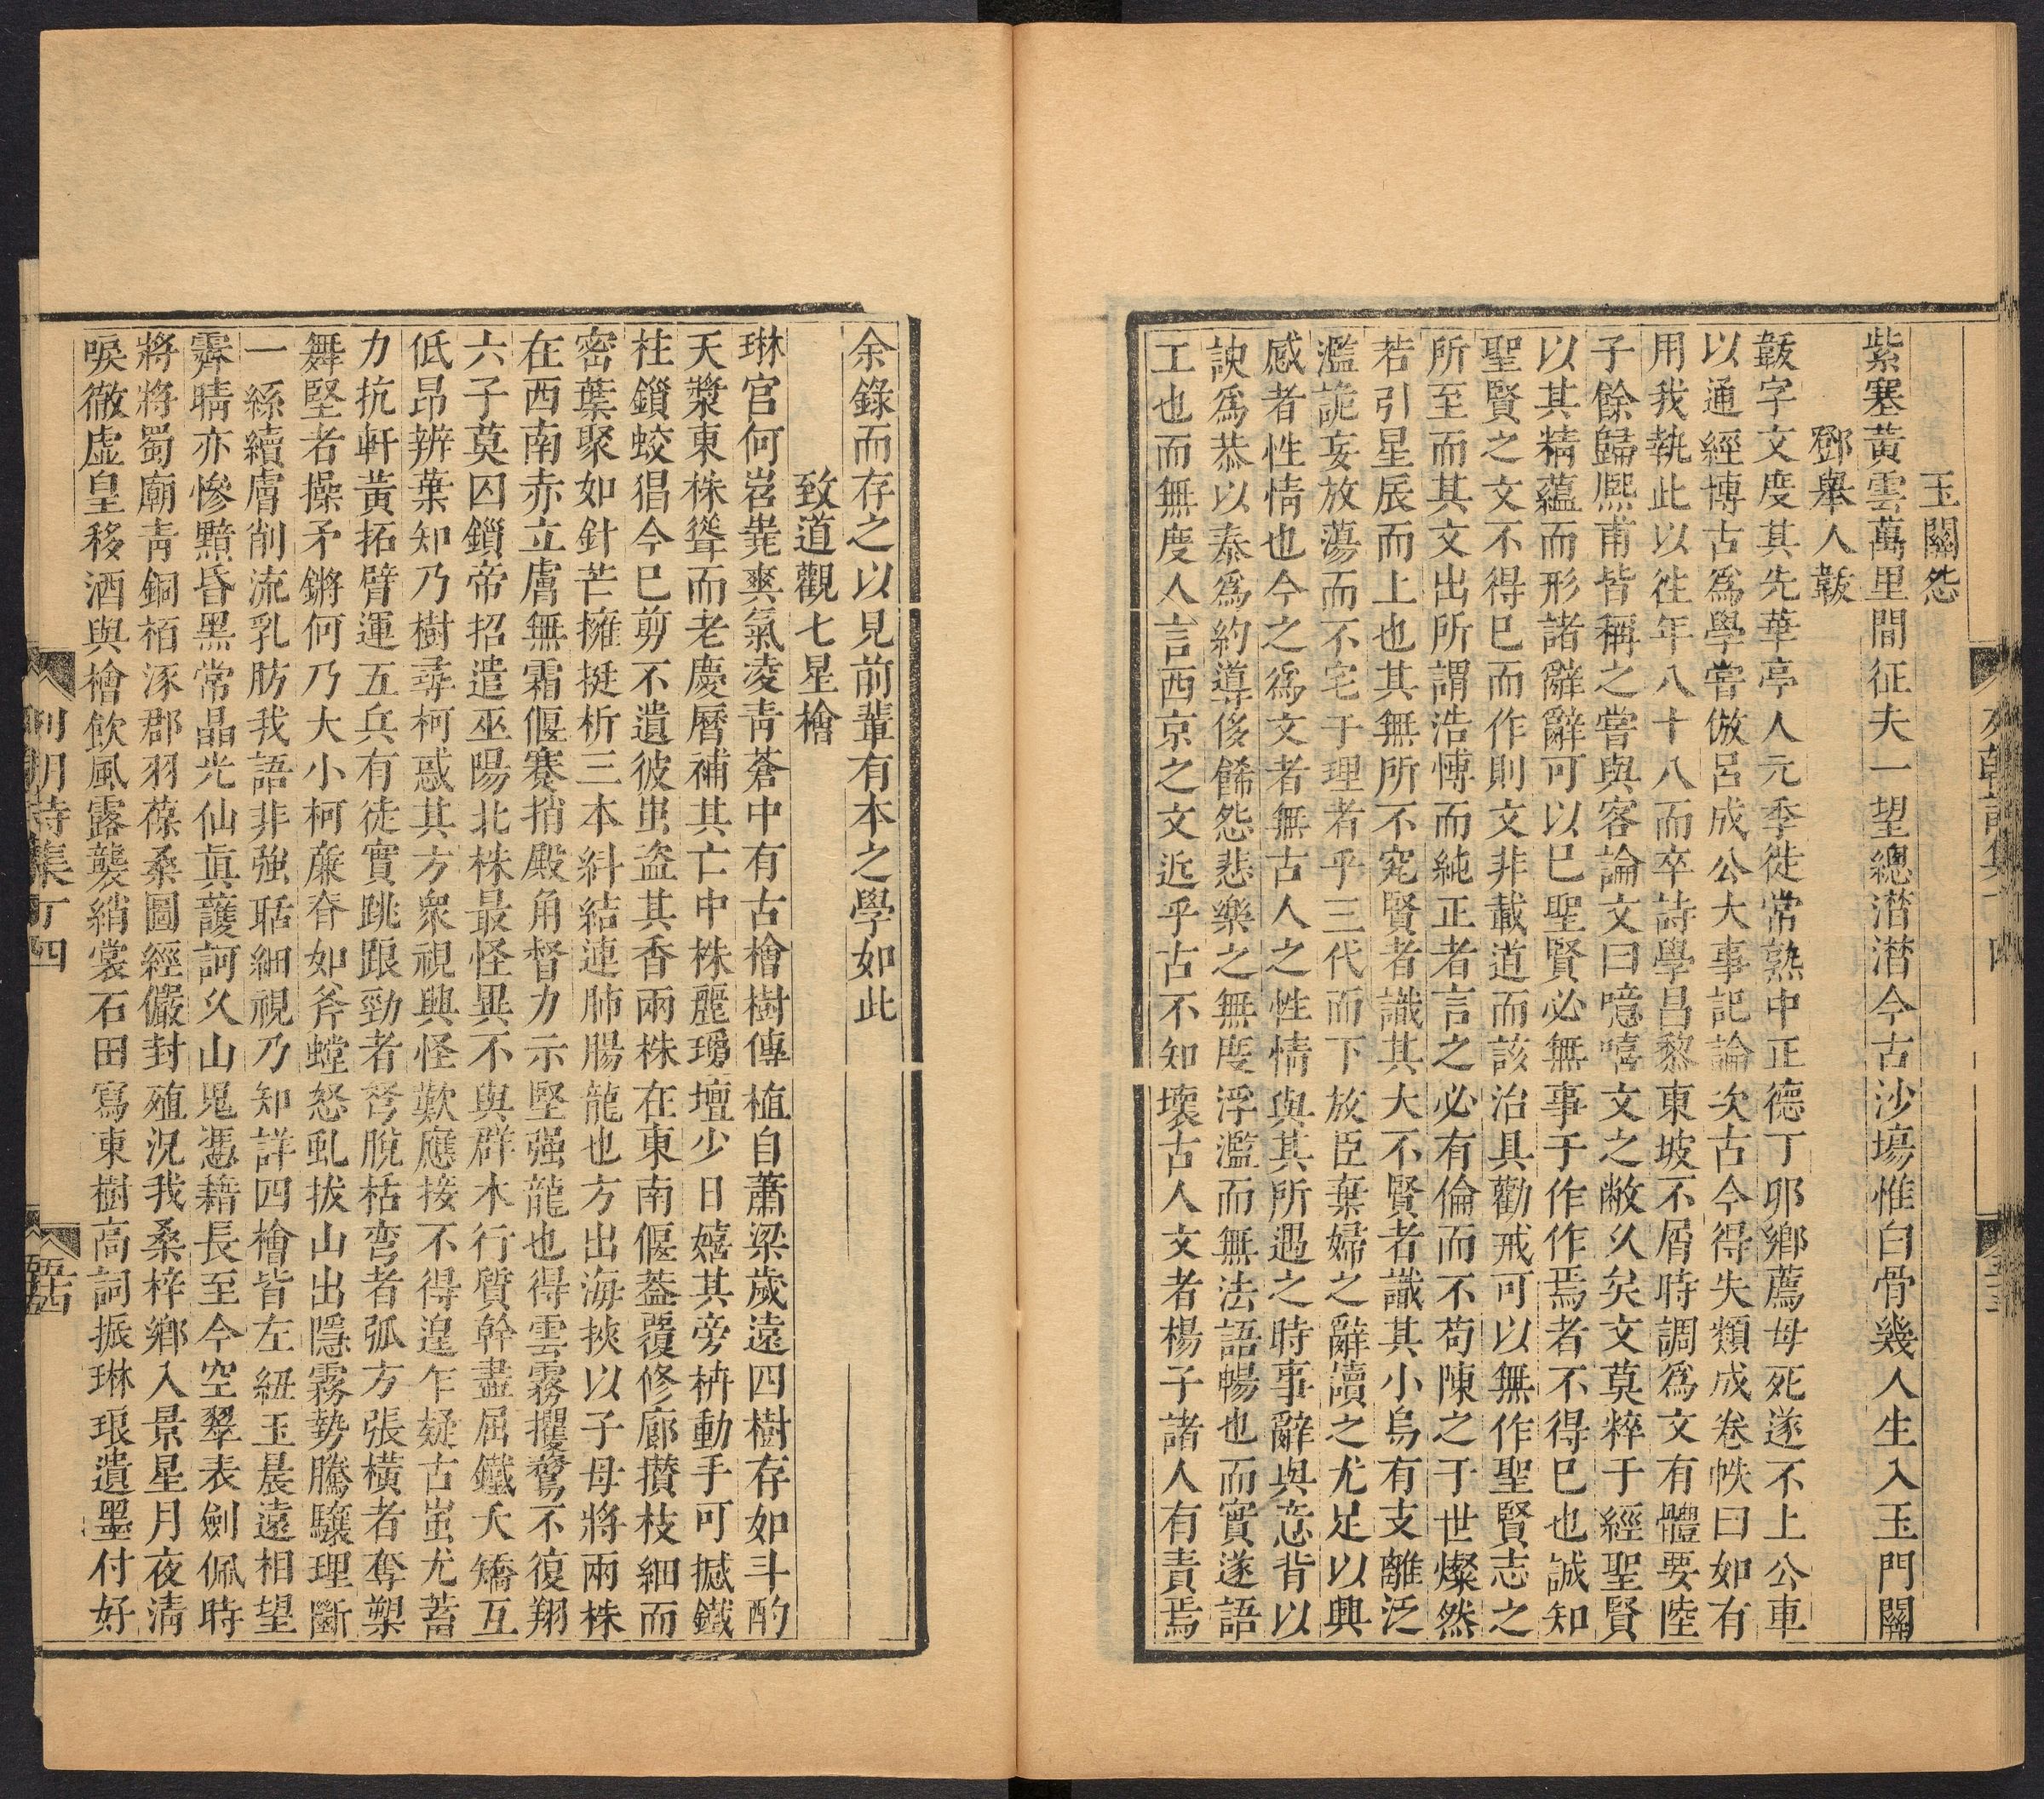 玉關怨
紫塞黃雲萬里間征夫一望總潸潸今古沙場惟白骨幾人生入玉門關
鄧舉人韍
韍字文度其先華亭人元季徙常熟中正德丁卯鄉薦母死遂不上公車
以通經博古爲學嘗倣呂成公大事記論次古今得失類成卷帙曰如有
用我執此以往年八十八而卒詩學昌黎東坡不屑時調爲文有體要陸
子餘歸熙甫皆稱之嘗與客論文曰噫嘻文之敝久矣文莫粹于經聖賢
以其精蘊而形諸辭辭可以已聖賢必無事于作作焉者不得已也誠知
聖賢之文不得已而作則文非載道而該治具勸戒可以無作聖賢志之
所至而其文出所謂浩愽而純正者言之必有倫而不苟陳之于世燦然
若引星辰而上也其無所不究賢者識其大不賢者識其小烏有支離泛
濫詭妄放蕩而不宅于理者乎三代而下放臣棄婦之辭讀之尤足以興
感者性情也今之爲文者無古人之性情與其所遇之時事辭與意背以
諛爲恭以泰爲約導侈餙怨悲樂之無度浮濫而無法語暢也而實遂語
工也而無度人言西京之文近乎古不知壞古人文者楊子諸人有責焉
余錄而存之以見前輩有本之學如此
致道觀七星檜
琳宮何岧嶤爽氣凌靑蒼中有古檜樹傳植自蕭梁歲遠四樹存如斗酌
天漿東株聳而老慶曆補其亡中株麗瑤壇少日嬉其旁枿動手可撼鐵
柱鎖蛟猖今已剪不遺彼蚩盜其香兩株在東南偃葢覆修廊攅枝細而
密葉聚如針芒擁挺析三本糾結連肺腸龍也方出海挾以子母將兩株
在西南赤立膚無霜偃蹇捎殿角督力示堅强龍也得雲霧攫鶩不復翔
六子莫囚鎖帝招遣巫陽北株最怪異不與群木行質幹盡屈鐵夭矯互
低昂辨葉知乃樹尋柯惑其方衆視興怪歎應接不得遑乍疑古蚩尤蓄
力抗軒黃拓臂運五兵有徒實跳踉勁者弩脫栝弯者弧方張橫者奪槊
舞堅者操矛鏘何乃大小柯廉脊如斧螳怒虬拔山出隱霧勢騰驤理斷
一絲續膚削流乳肪我語非強聒細視乃知詳四檜皆左紐玉晨遠相望
霽晴亦慘黷昏黑常晶光仙眞護訶久山鬼憑藉長至今空翠表劍佩時
將將蜀廟靑銅栢涿郡羽葆桑圖經儼封殖況我桑梓鄉入景星月夜淸
唳徹虛皇移酒與檜飲風露襲綃裳石田寫東樹高詞振琳琅遺墨付好
列朝詩集丁四